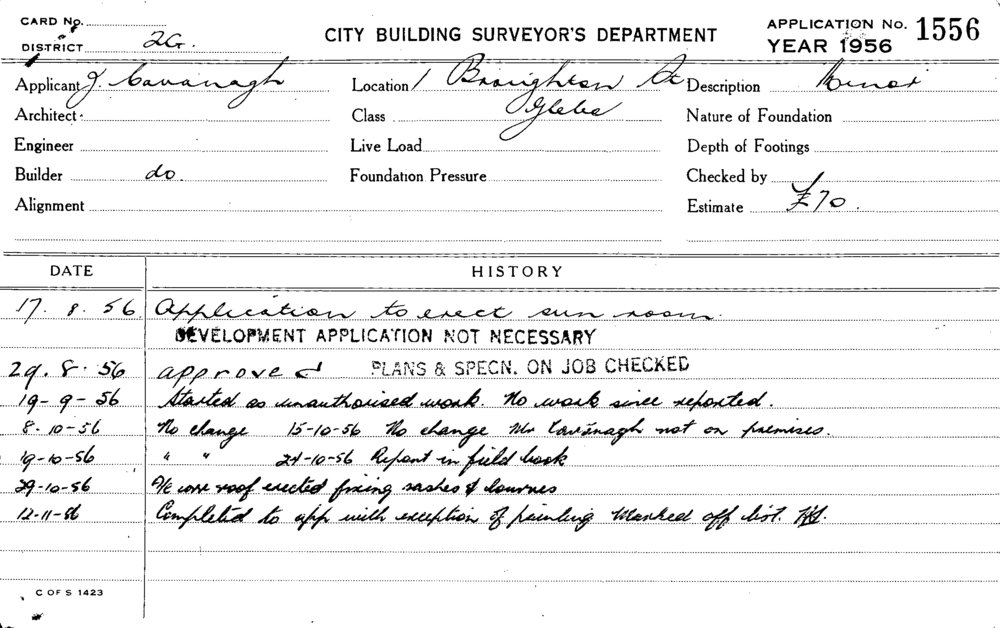 CARD No.
DISTRICT 2G.
CITY BUILDING SURVEYOR'S DEPARTMENT
APPLICATION No. 1556
YEAR 1956
Applicant J Cavanagh
Location 1 Broughton St
Glebe
Description Minor
Architect
Class
Nature of Foundation
Engineer
Live Load
Depth of Footings
Builder do.
Foundation Pressure
Checked by
Alignment
Estimate £70.
DATE HISTORY
17. 8. 56 Application to erect sun room.
DEVELOPMENT APPLICATION NOT NECESSARY
29. 8. 56 approved PLANS & SPECN. ON JOB CHECKED
19-9-56 Started as unauthorised work. No work since reported.
8-10-56 No change 15-10-56 No change Mr Cavanagh not on premises.
19-10-56 " " 24-10-56 Report in field book
29-10-56 A/c roof erected fixing sashes & louvres
12-11-56 Completed to app with exception of painting Marked off list.
C OF S 1423